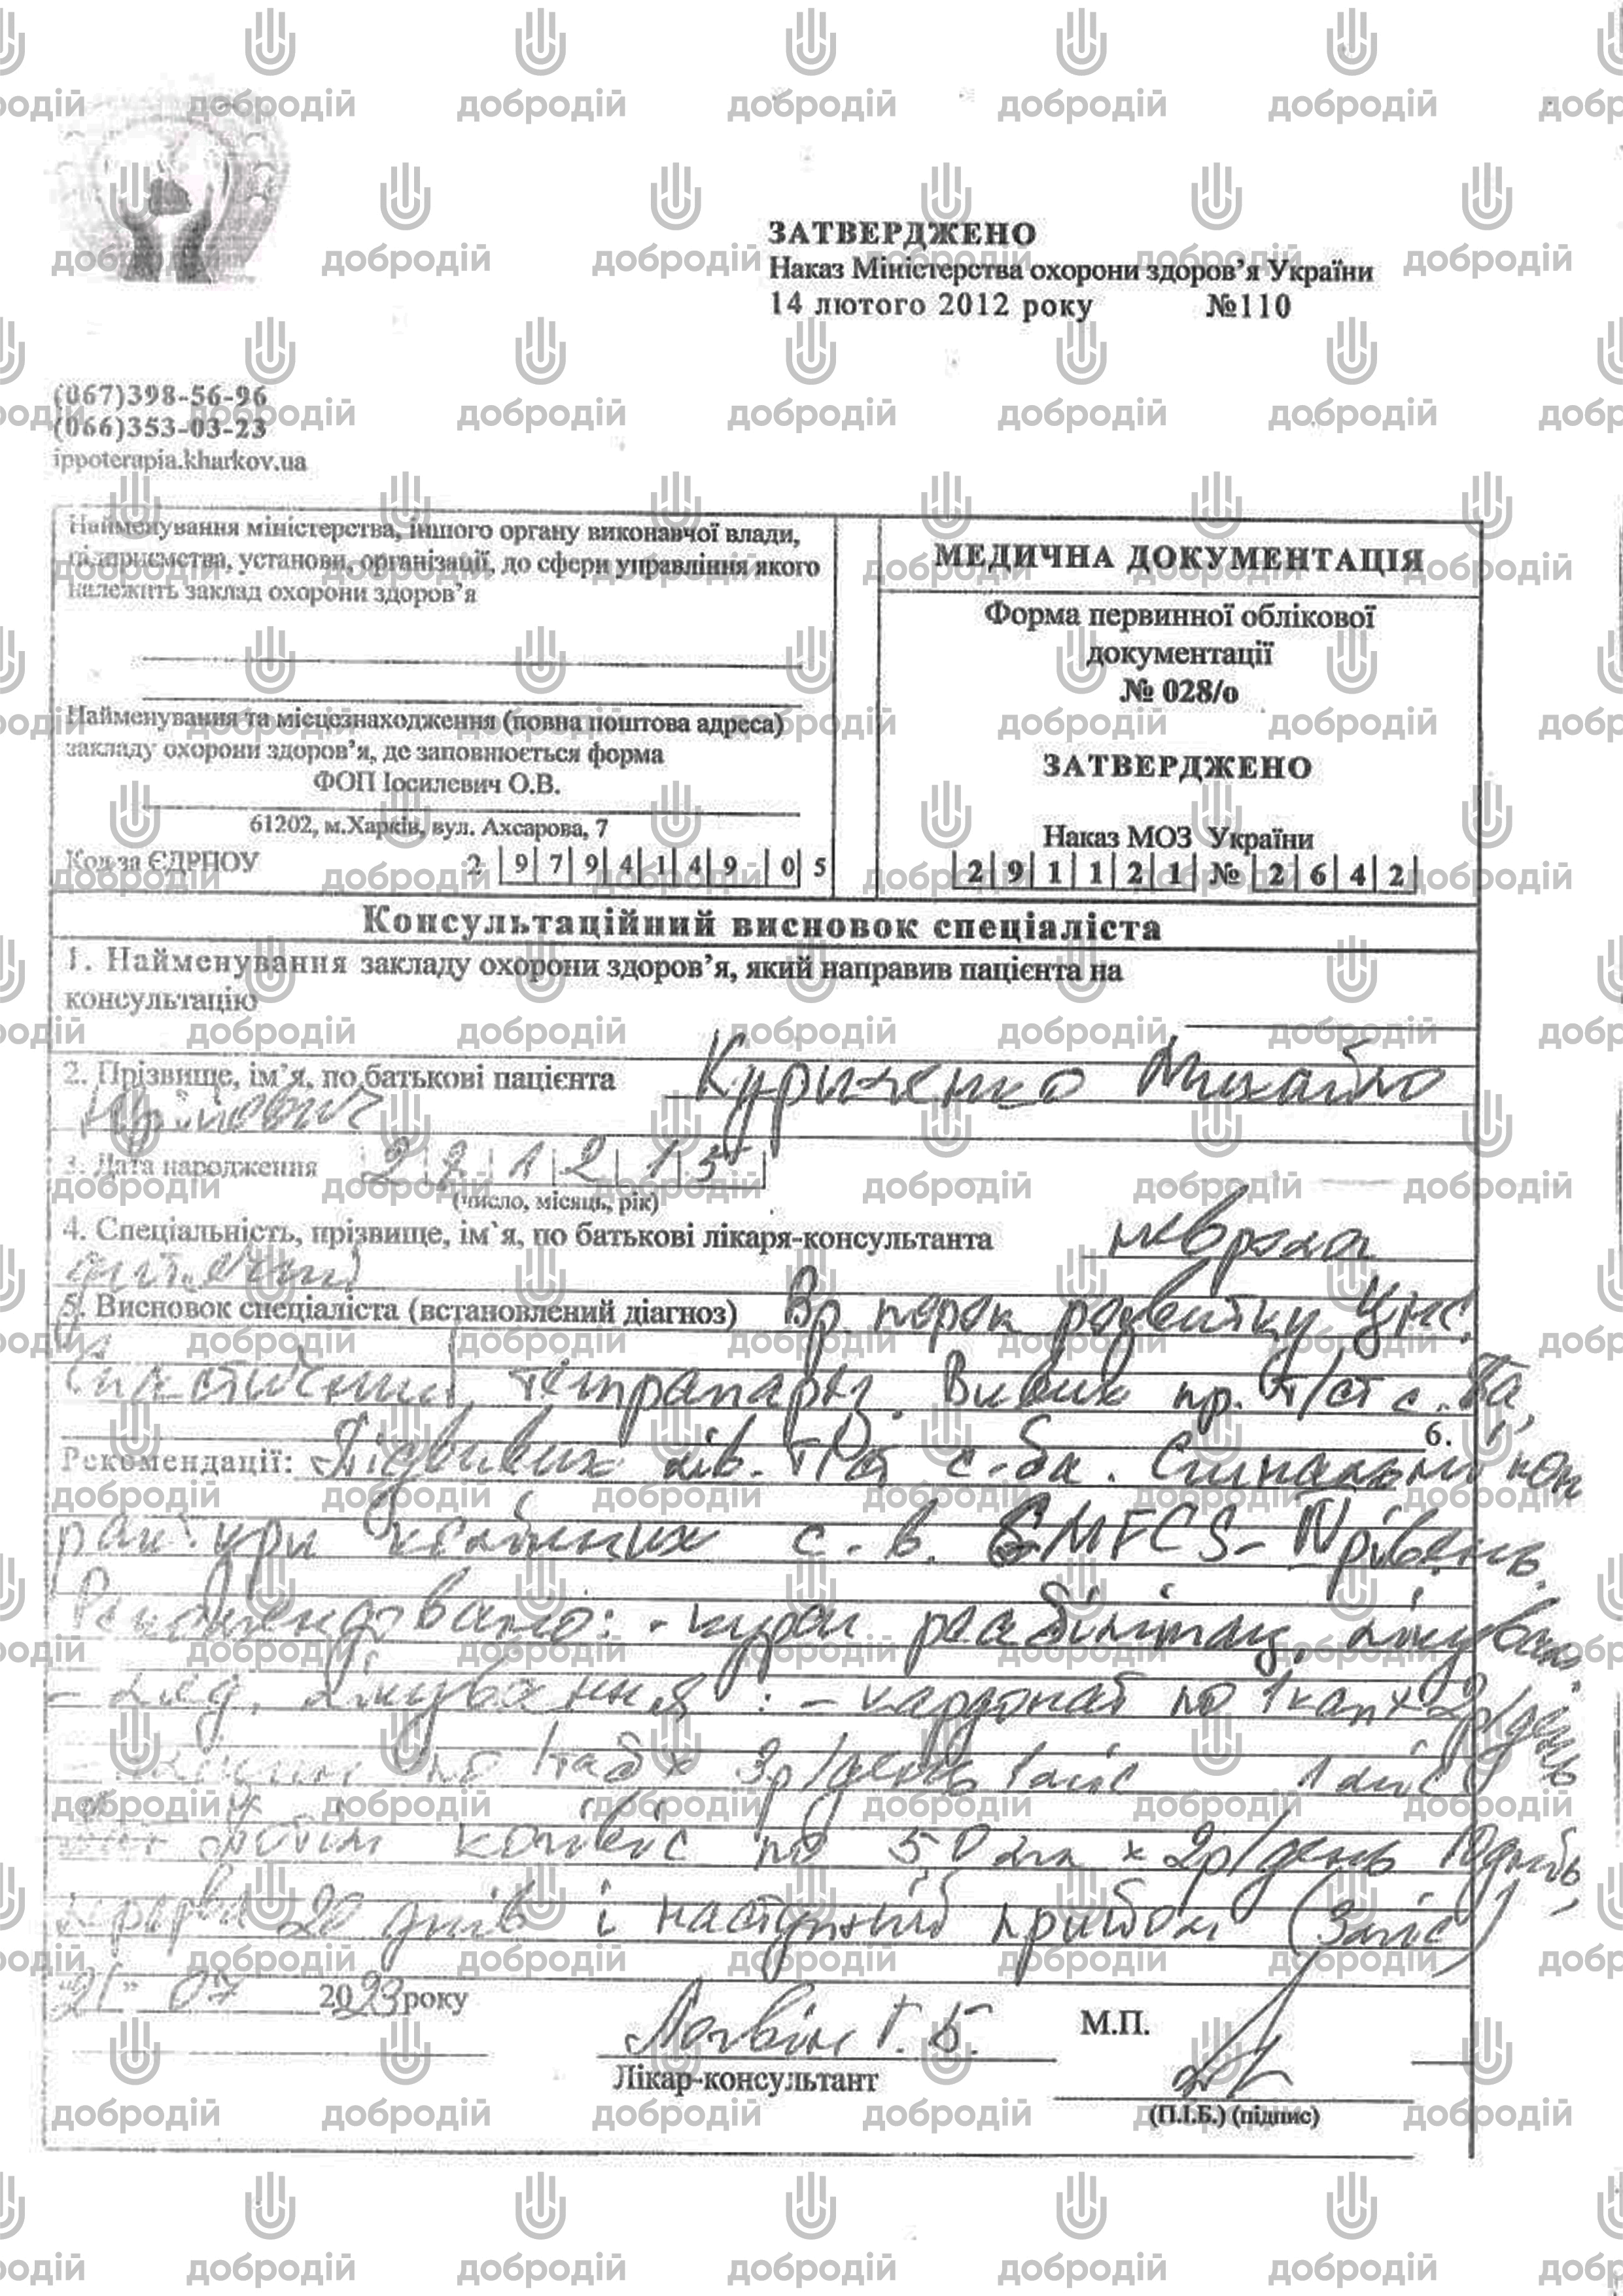 ЗАТВЕРДЖЕНО
Наказ Міністерства охорони здоров’я України
14 лютого 2012 року №110
(067)398-56-96
(066)353-03-23
ippoterapia.kharkov.ua
Найменування міністерства, іншого органу виконавчої влади,
підприємства, установи, організації, до сфери управління якого
належить заклад охорони здоров’я
Найменування та місцезнаходження (повна поштова адреса)
закладу охорони здоров’я, де заповнюється форма
ФОП Іосилевич О.В.
61202, м.Харків, вул. Ахсарова, 7
Код за ЄДРПОУ 2 9 7 9 4 1 4 9 0 5
МЕДИЧНА ДОКУМЕНТАЦІЯ
Форма первинної облікової
документації
№ 028/о
ЗАТВЕРДЖЕНО
Наказ МОЗ України
2 9 1 1 2 1 № 2 6 4 2
Консультаційний висновок спеціаліста
1. Найменування закладу охорони здоров’я, який направив пацієнта на
консультацію
2. Прізвище, ім’я, по батькові пацієнта Михайло
3. Дата народження
(число, місяць, рік)
4. Спеціальність, прізвище, ім`я, по батькові лікаря-консультанта невролог
дитячий
5. Висновок спеціаліста (встановлений діагноз) Вр. порок розвитку ЦНС.
Спастичний тетрапарез. Вивих пр. т/ст с-ба,
6.
Рекомендації: Підвивих лів. т/ст с-ба.
с-в. GMFCS-IV рівень.
Рекомендовано: - курси реабілітац. лікуван.
- мед. лікування: - кардонат по 1 кап x 2р/день
по 1 таб x 3р/день 1 міс 1 міс
потім по 5,0 мл x 2р/день 10 днів,
перерва 20 днів і наступний прийом (3 міс)
"21" 07 2023 року
Логвін Г. Б. М.П.
Лікар-консультант
(П.І.Б.) (підпис)
добродій